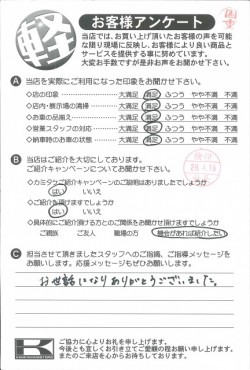 軽
お客様アンケート
当店では、お買い上げ頂いたお客様の声を可能
な限り現場に反映し、お客様により良い商品と
サービスを提供する事に努めています。
大変お手数ですが是非お声をお聞かせ下さい。
A 当店を実際にご利用になった印象をお聞かせ下さい。
◇店の印象 大満足 満足 ふつう やや不満 不満
◇店内・展示場の清掃 大満足 満足 ふつう やや不満 不満
◇お車の品揃え 大満足 満足 ふつう やや不満 不満
◇営業スタッフの対応 大満足 満足 ふつう やや不満 不満
◇納車時のお車の状態 大満足 満足 ふつう やや不満 不満
B 当店はご紹介を大切にしております。
ご紹介キャンペーンについてお聞かせ下さい。
◇カミタケご紹介キャンペーンのご説明はありましたでしょうか
はい いいえ
◇ご紹介を頂けますでしょうか
はい いいえ
◇具体的にご紹介頂ける方とのご関係をお聞かせ頂けますでしょうか
ご親族 ご友人 職場の方 機会があれば紹介したい
C 担当させて頂きましたスタッフへのご指摘、ご指導メッセージを
お願いします。応援メッセージもぜひお願いします。
お世話になりありがとうございました。
K
ご協力に心よりお礼を申し上げます。
今後とも宜しくお引き立てご愛顧の程お願い申し上げます。
またのご来店を心からお待ちしております。